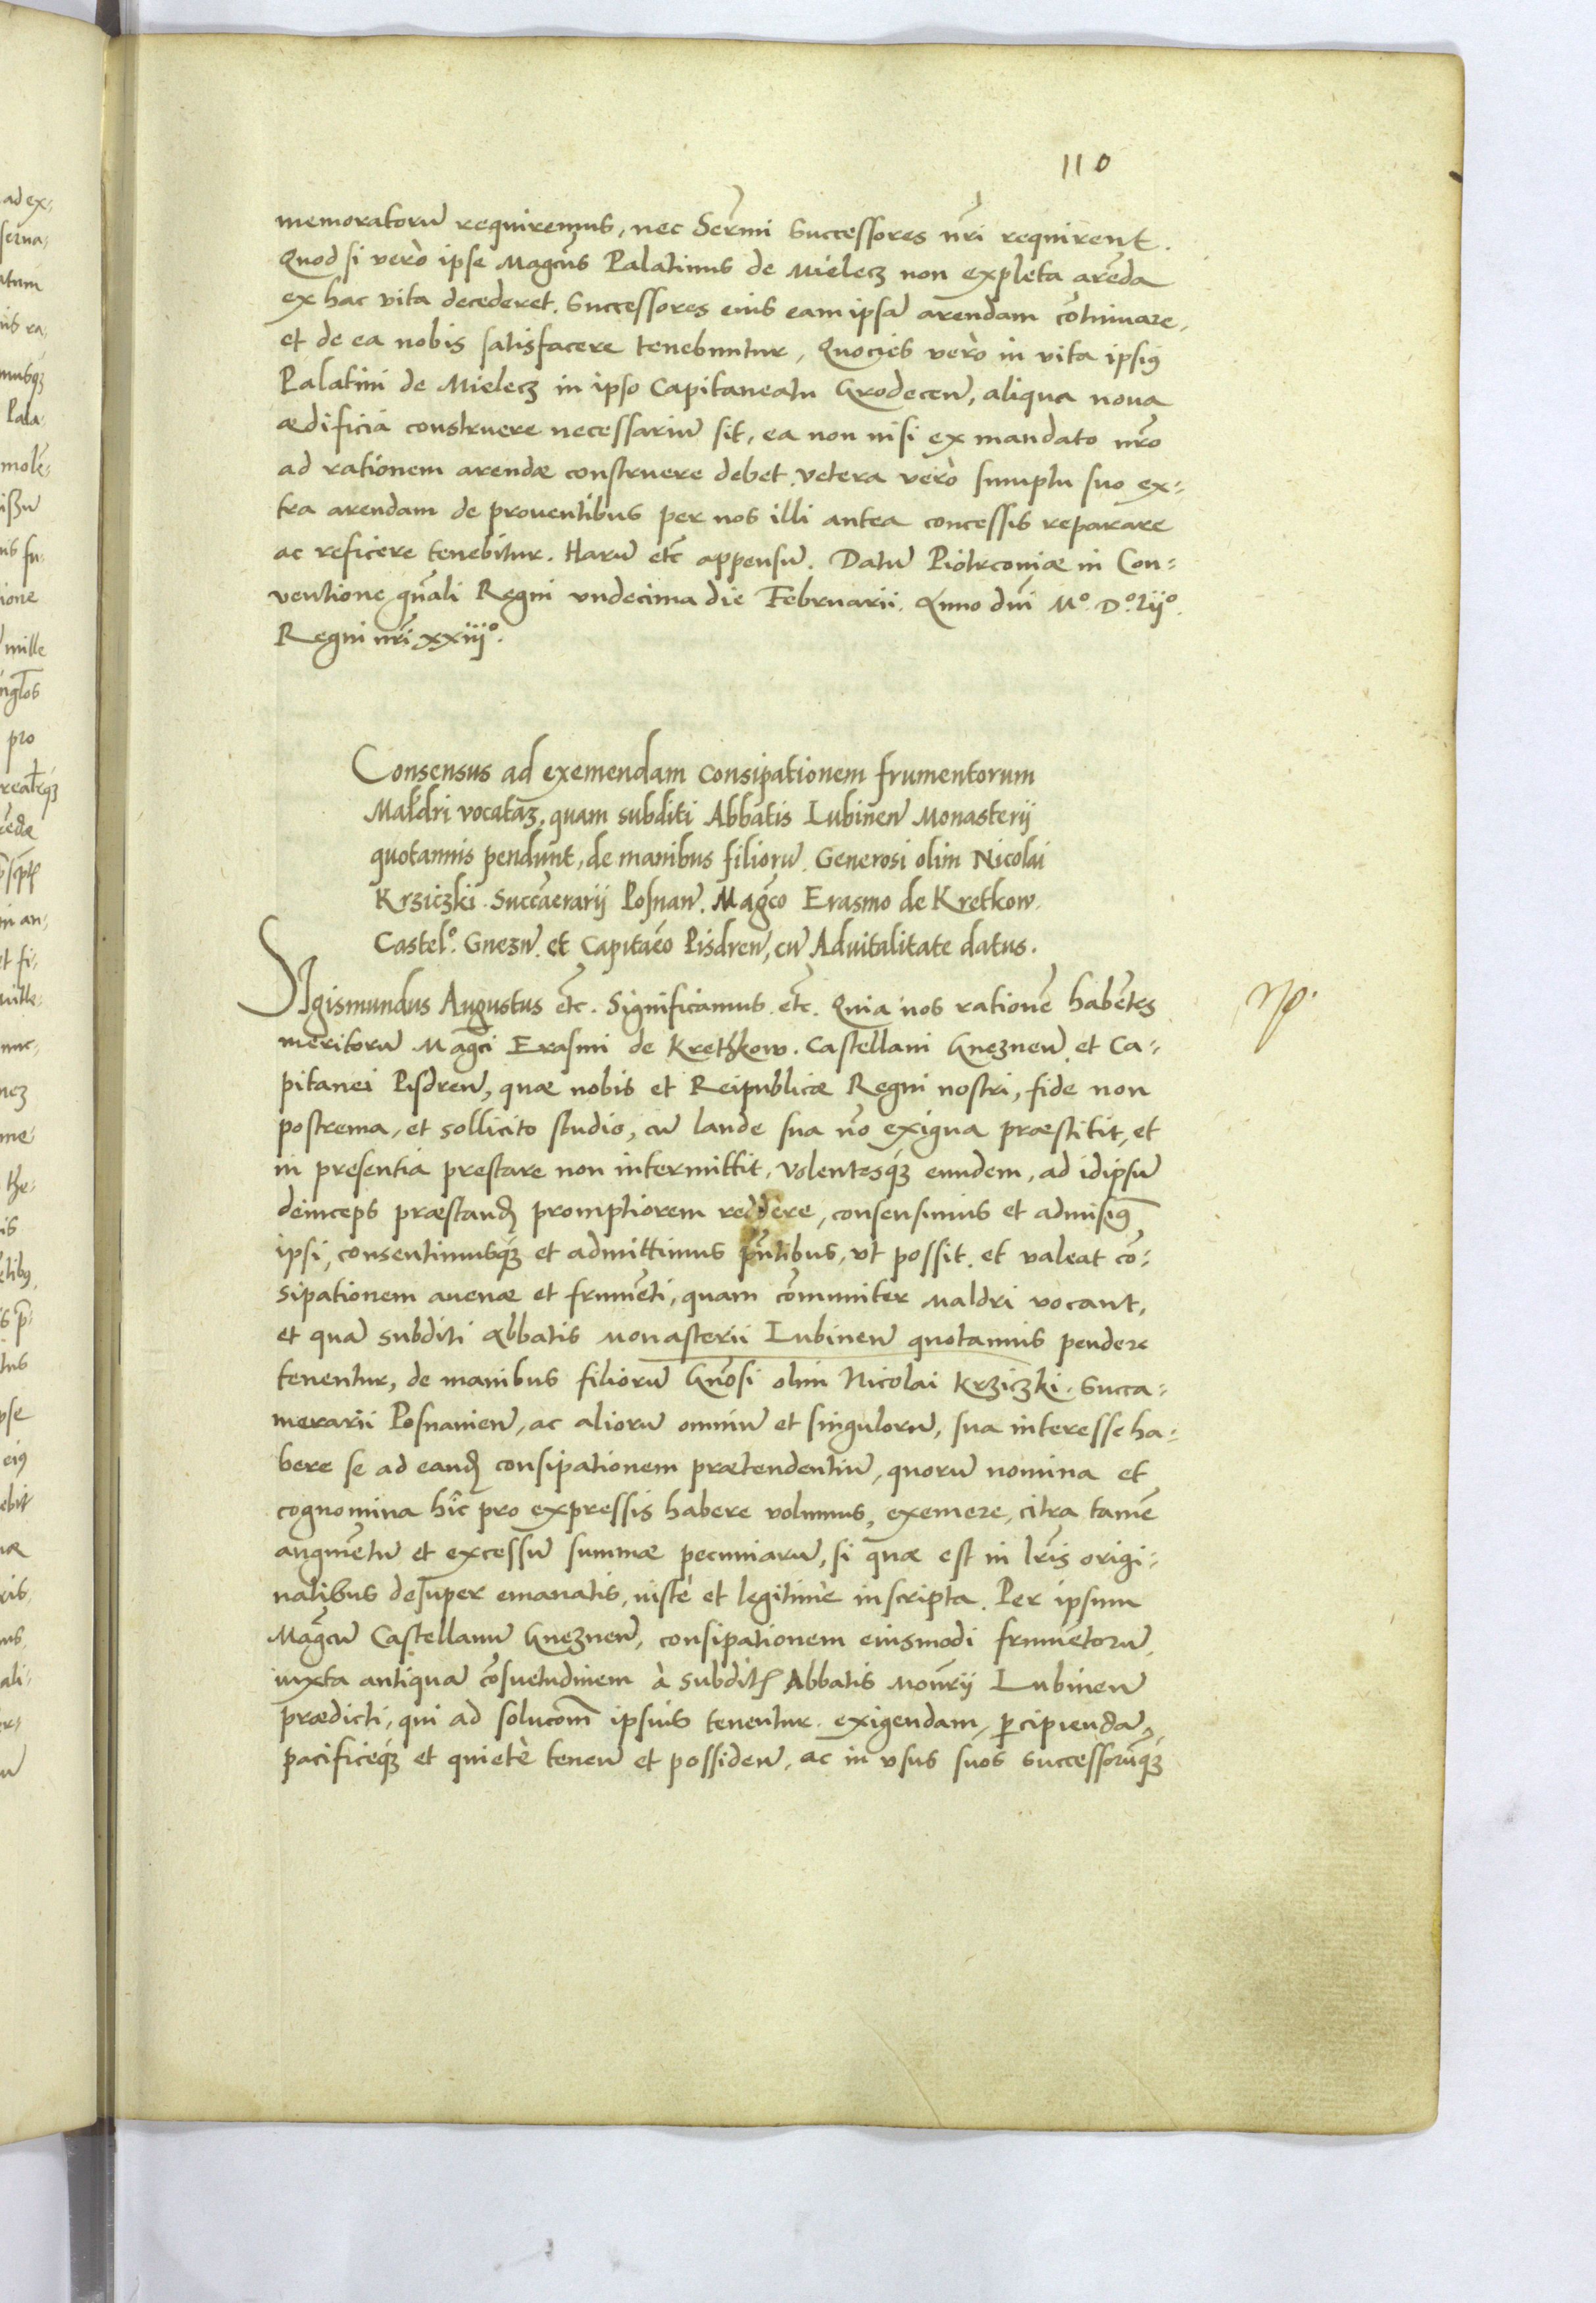 110
memoratorũ requiremus, nec Serm̃i Successores nr̃i requirent.
Quod si verò ipse Magcũs Palatinus de Mielecz non expleta arẽda
ex hac vita decederet. Successores eius eam ipsã arendam cõtinuare,
et de ea nobis satisfacere tenebuntur, Quocies verò in vita ipsiꝰ
Palatini de Mielecz in ipso Capitaneatu Grodeceñ, aliqua noua
ædificia construere necessariũ sit, ea non nisi ex mandato nr̃o
ad rationem arendæ construere debet. vetera verò sumptu suo ex-
tra arendam de prouentibus per nos illi antea concessis reparare
ac reficere tenebitur. Harũ etc̃ appensũ. Datũ Piotrconiæ in Con-
ventione gñali Regni vndecima die Februarii. Anno dnĩ Mº. Dº. lijº.
Regni nr̃i xxiijº.
Consensus ad exemendam consipationem frumentorum
Maldri vocatam, quam subditi Abbatis Lubineñ Monasterij
quotannis pendunt, de manibus filiorũ. Generosi olim Nicolai
Krziczki. Succãerarij Posnañ. Magc̃o Erasmo de Kretkow.
Castelº. Gnezñ. et Capitaẽo Pisdreñ, cũ Aduitalitate datus.
SIgismundus Augustus etc̃. Significamus. etc̃. Quia nos rationẽ habẽtes
meritorũ Magc̃i Erasmi de Kretkow. Castellani Gnezneñ. et Ca-
pitanei Pisdreñ, quæ nobis et Reipublicæ Regni nostri, fide non
postrema, et sollicito studio, cũ laude sua nõ exigua præstitit, et
in presentia prestare non intermittit, Volentesq́ꝫ eundem, ad idipsũ
deinceps præstanđ promptiorem reddere, consensimus et admisimꝰ
ipsi, consentimusq́ꝫ et admittimus pñtibus, vt possit. et valeat cõ-
sipationem auenæ et frumẽti, quam cõmuniter Maldri vocant,
et quã subditi Abbatis Monasterii Lubineñ quotannis pendere
tenentur, de manibus filiorũ Gñosi olim Nicolai Krziczki. Succa-
merarii Posnanieñ, ac aliorũ omniũ et singulorũ, sua interesse ha-
bere se ad eanđ consipationem prætendentiũ, quorũ nomina et
cognomina hîc pro expressis habere volumus, exemere, citra tamẽ
augmẽtũ et excessũ summæ pecuniarũ, si quæ est in lr̃is origi-
nalibus desuper emanatis, iustè et legitimè inscripta. Per ipsum
Magcũ Castellanũ Gnezneñ, consipationem eiusmodi frumẽtorũ,
iuxta antiquã cõsuetudinem à subditꝭ Abbatis Monr̃ij Lubineñ
prædicti, qui ad solucom̃ ipsius tenentur. exigendam, ꝑcipiendã,
pacificeq́ꝫ et quietè teneñ et possideñ, ac in vsus suos successorũq́ꝫ